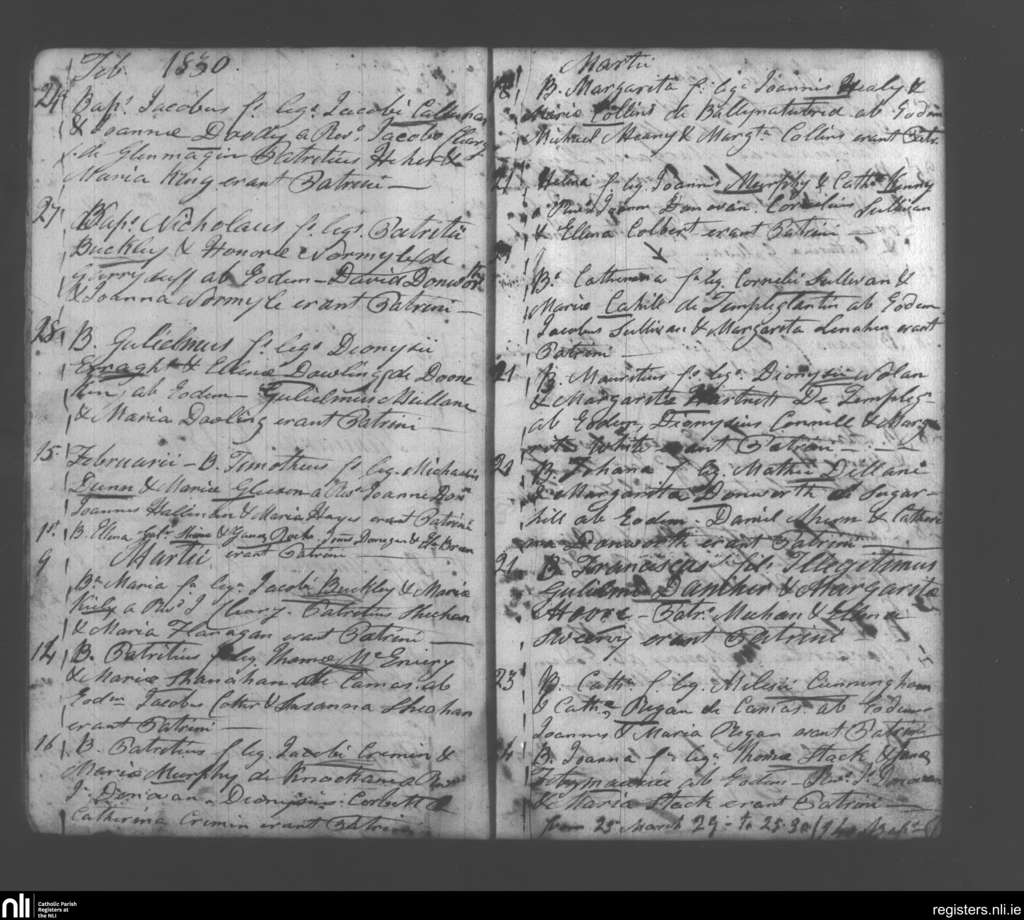 Feb 1830.
24 Bapt. Jacobus fs. legs. Jacobi Callaghan
& Joannæ Dooly a Revo. Jacobo Cleary
de Glenmagin Patritius Heher &
Maria King erant Patrini
27 Bapt. Nicholaus fs. legs. Patritii
Buckley & Honoræ Normyle de
Gurryduff ab Eodem - David Donworth
& Joanna Normyle erant Patrini
28 B. Gulielmus fs. legs. Dionysii
& Elenæ Dowling de Doone
ab Eodem - Gulielmus Mullane
& Maria Dooling erant Patrini
15 Februarii - B. Timotheus fs. leg. Michaelis
Dunn & Mariæ Gleeson a Revo. Joanne Don
Joannes Hallinhan & Maria Hayes erant Patrini
1st. B. Ellena & Roche
erant Patrini
9 Martii
B. Maria fs. leg. Jacobi Buckley & Mariæ
Kiely a Revo. J Cleary. Patritius Sheehan
& Maria Flanagan erant Patrini
14 B. Patritius f leg. Thomæ McEniry
& Mariæ Shanahan de Camas. ab
Eodm. Jacobus & Susanna Sheahan
erant Patrini
16 B. Patritius f leg. Jacobi Cremin &
Mariæ Murphy de a Revo
Js. Donovan - Dionysius Corbett &
Catherina Cremin erant Patrini
Martii
18 B. Margarita fs. legs. Joannis Healy &
Mariæ Collins de ab Eodm
Michael Meany & Margta. Collins erant Patr.
21 Helena fs. leg. Joannis Murphy & Cathæ Kenny
a Revo Joanne Donovan. Cornelius Sullivan
& Ellena Colbert erant Patrini
B. Catherina fs. leg. Cornelii Sullivan &
Mariæ Cahill de Templeglantin ab Eodem
Jacobus Sullivan & Margarita Lenahan erant
Patrini
21 B. Mauritius fs. leg. Dionysii Nolan
& Margaritæ Hartnett De Templeg
ab Eodem, Dionysius Connell & Marga
White erant Patrini
22 B. Johana f leg. Mathæi Dillane
& Margarita Donworth de Sugar-
hill ab Eodem. Daniel Ahern & Catheri
na Donworth erant Patrini
21 B Franciscus fils Illegitimus
Gulielmi Danther & Margarita
Hoore - Patrs. Mehan & Elena
Sweeny erant Patrini
23 B. Catha. f. leg. Milesii Cunningham
& Cathæ Regan de Camas ab Eodem
Joannes & Maria Regan erant Patrini
24 B. Joanna fs. legs. Thomæ Stack & Janæ
Fitzmaurice ab Eodem - Revs. Js. Donovan
& Maria Stack erant Patrini
from 25 March 29 - to 25 30
nli
Catholic Parish
Registers at
the NLI
registers.nli.ie